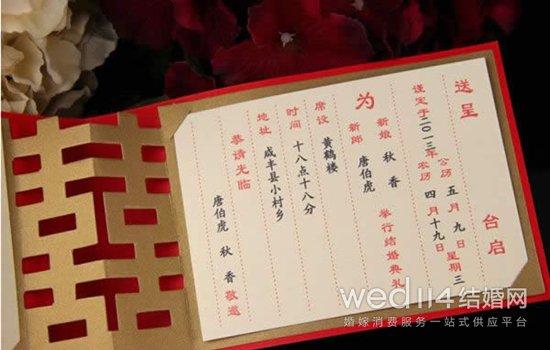 送呈 台启
谨定于二〇一三年
公历 五月九日 星期三
农历 四月十九日
为
新娘 秋香
新郎 唐伯虎
举行结婚典礼
席设 黄鹤楼
时间 十八点十八分
地址 咸丰县小村乡
恭请光临
唐伯虎 秋香 敬邀
囍
wed114结婚网
婚嫁消费服务一站式供应平台